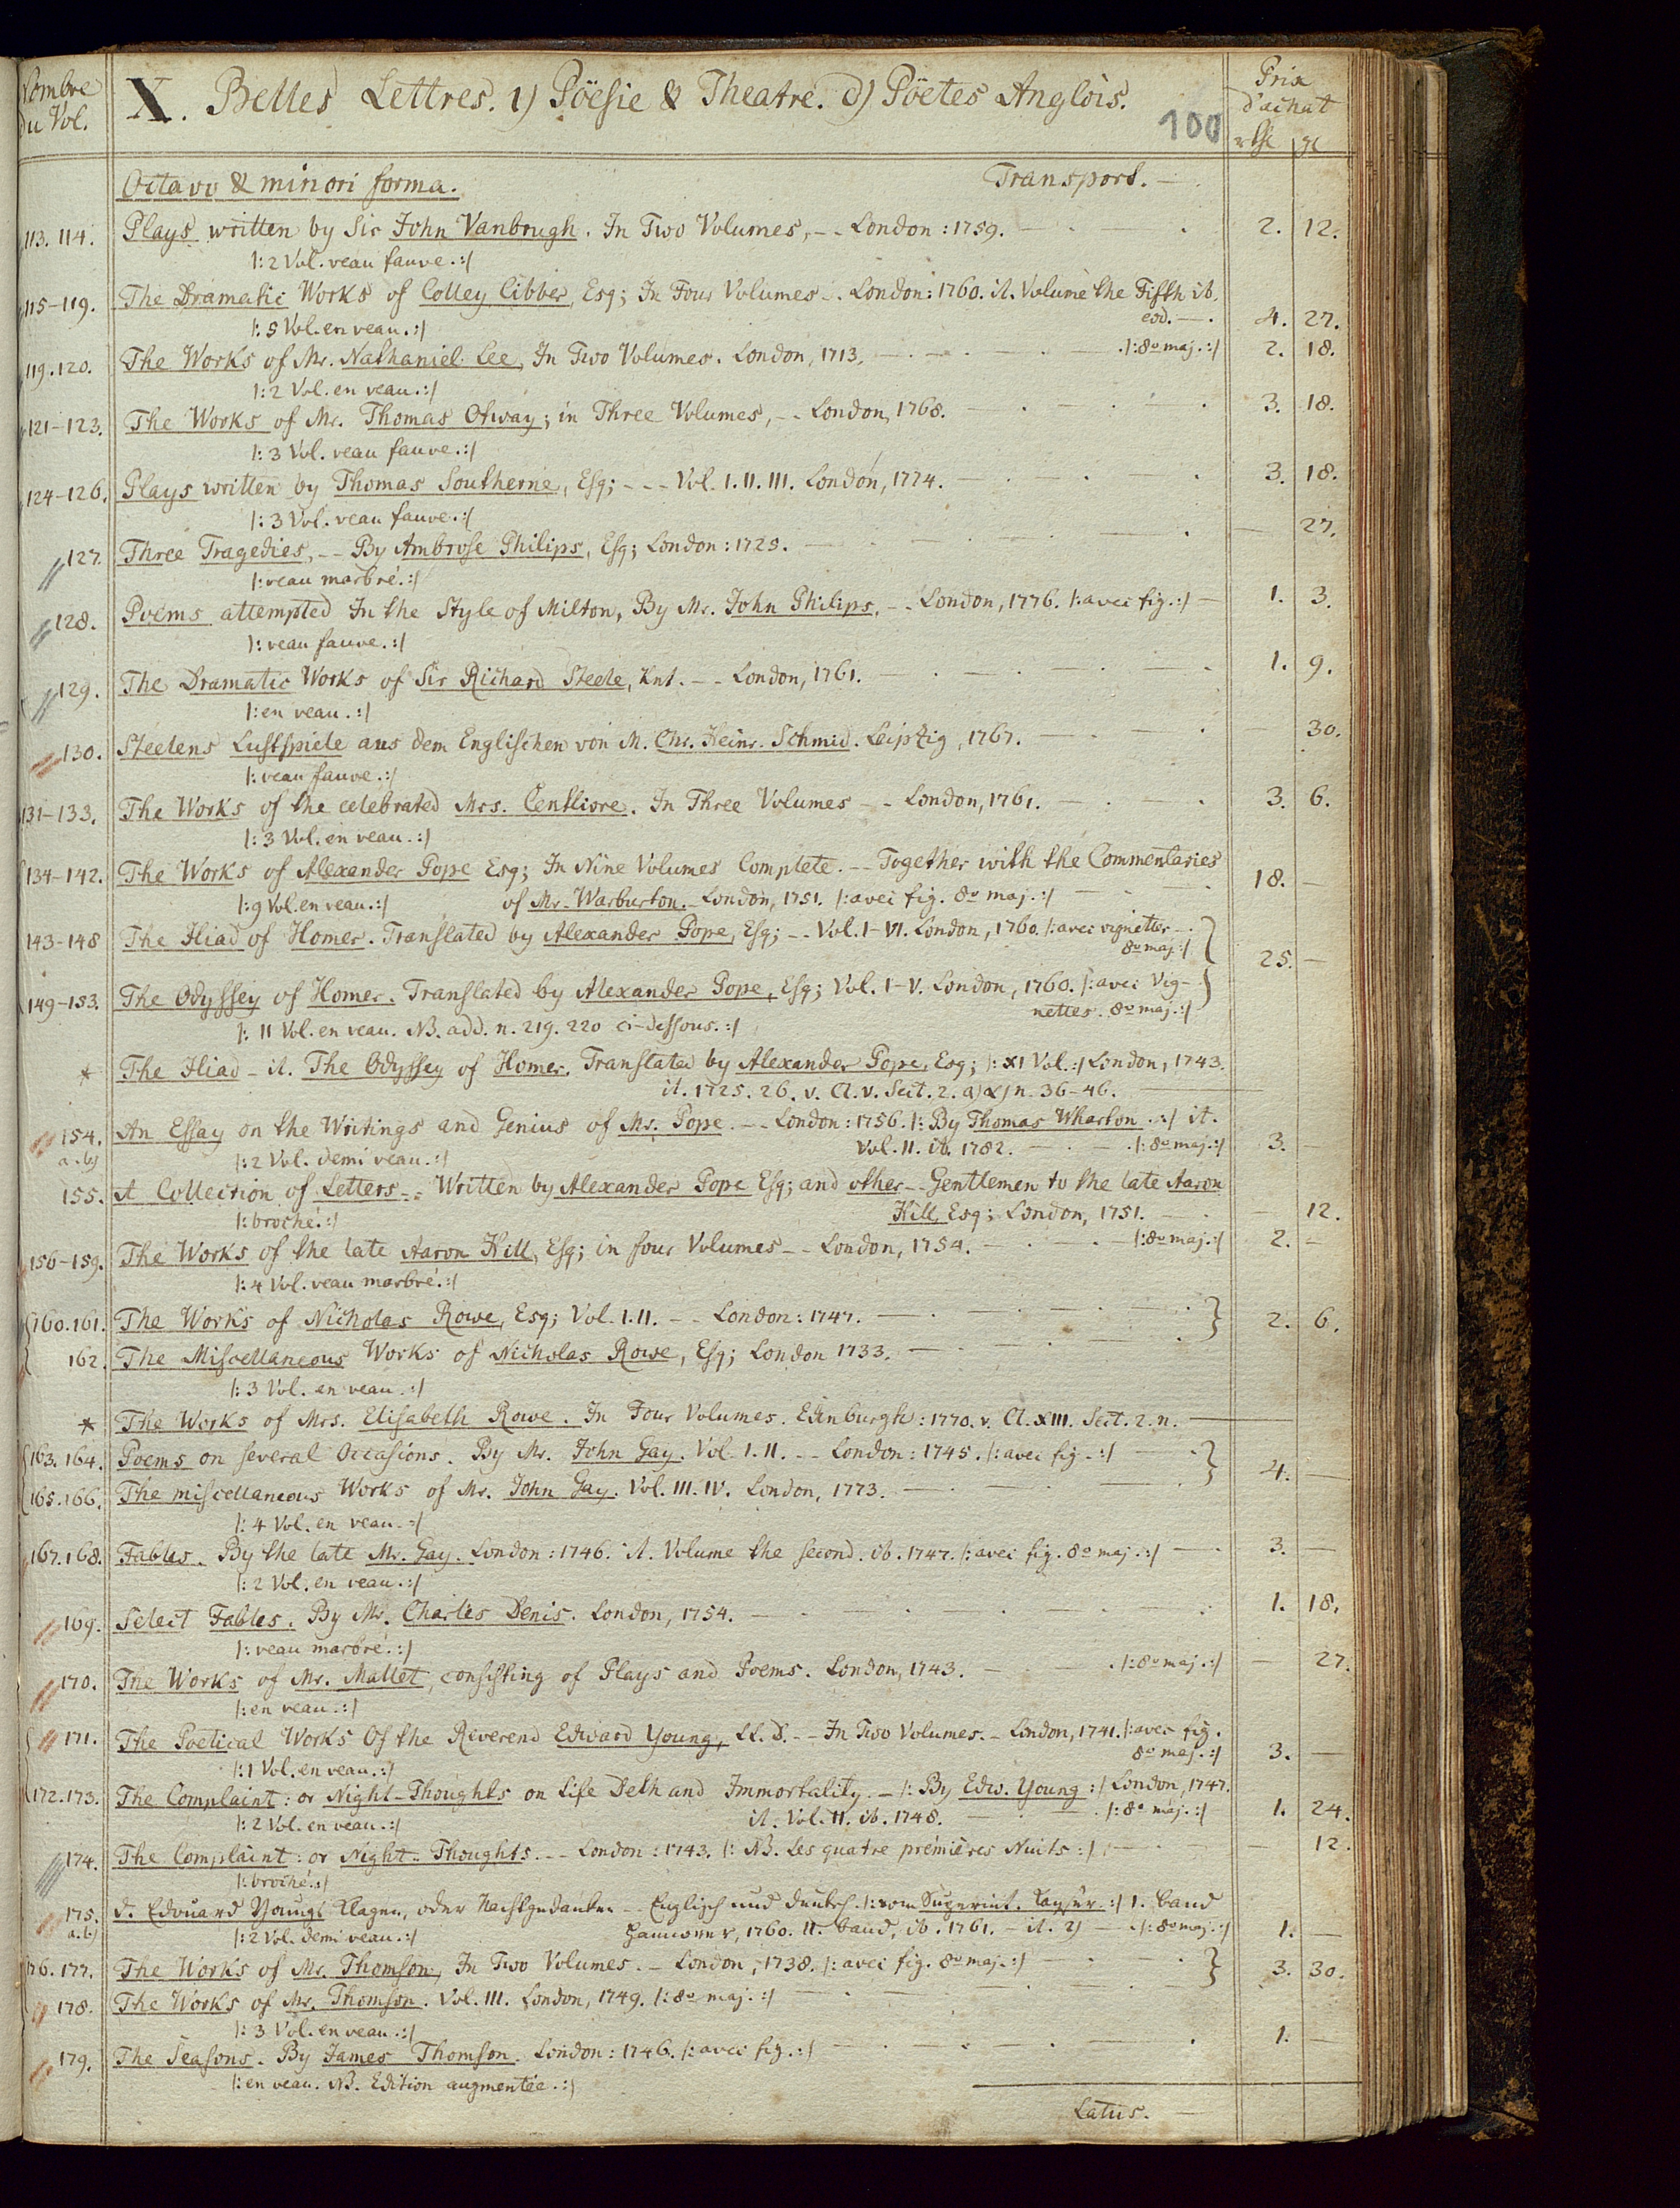 Nombre du Vol.
X. Belles Lettres. 1) Pöesie & Theatre. d) Pöetes Anglois.
100
Prix d'achat
Octavo & minori forma. Transport. —
113. 114. Plays written by Sir John Vanbrugh. In Two Volumes, -- London: 1759. — 2. 12.
|: 2 Vol. veau fauve. :|
115-119. The Dramatic Works of Colley Cibber, Esq; In Four Volumes -. London: 1760. it. Volume the Fifth ib.
|: 5 Vol. en veau. :| eod. — 4. 27.
119. 120. The Works of Mr. Nathaniel Lee, In Two Volumes. London, 1713. — |: 8o maj. :| 2. 18.
|: 2 Vol. en veau. :|
121-123. The Works of Mr. Thomas Otway; in Three Volumes, -- London, 1768. — 3. 18.
|: 3 Vol. veau fauve. :|
124-126. Plays written by Thomas Southerne, Esq; --- Vol. I. II. III. London, 1774. — 3. 18.
|: 3 Vol. veau fauve. :|
127. Three Tragedies, -- By Ambrose Philips, Esq; London: 1725. — — 27.
|: veau marbré. :|
128. Poems attempted In the Style of Milton, By Mr. John Philips. -- London, 1776. |: avec fig. :| — 1. 3.
|: veau fauve. :|
129. The Dramatic Works of Sir Richard Steele, Knt. -- London, 1761. — 1. 9.
|: en veau. :|
130. Steelens Lustspiele aus dem Englischen von M. Chr. Heinr. Schmid. Leipzig, 1767. — 30.
|: veau fauve. :|
131-133. The Works of the celebrated Mrs. Centlivre. In Three Volumes -- London, 1761. — 3. 6.
|: 3 Vol. en veau. :|
134-142. The Works of Alexander Pope Esq; In Nine Volumes Complete. -- Together with the Commentaries
|: 9 Vol. en veau. :| of Mr. Warburton. - London, 1751. |: avec fig. 8o maj. :| — 18. —
143-148 The Iliad of Homer. Translated by Alexander Pope, Esq; -- Vol. I-VI. London, 1760. |: avec vignettes -.
8o maj. :| 25. —
149-153. The Odyssey of Homer. Translated by Alexander Pope, Esq; Vol. I-V. London, 1760. |: avec Vig-
|: 11 Vol. en veau. NB. add. n. 219. 220 ci-dessous. :| nettes. 8o maj. :|
* The Iliad - it. The Odyssey of Homer. Translated by Alexander Pope, Esq; |: XI Vol. :| London, 1743.
it. 1725. 26. v. Cl. V. Sect. 2. a) α) n. 36-46. —
154. An Essay on the Writings and Genius of Mr. Pope. -- London: 1756. |: By Thomas Wharton. :| it.
a. b) |: 2 Vol. demi veau. :| Vol. II. ib. 1782. — |: 8o maj. :| 3. —
155. A Collection of Letters -- Written by Alexander Pope Esq; and other -- Gentlemen to the late Aaron
|: broché. :| Hill, Esq; London, 1751. — — 12.
156-159. The Works of the late Aaron Hill, Esq; in four Volumes -- London, 1754. — |: 8o maj. :| 2. -
|: 4 Vol. veau marbré. :|
160. 161. The Works of Nicholas Rowe, Esq; Vol. I. II. -- London: 1747. — 2. 6.
162. The Miscellaneous Works of Nicholas Rowe, Esq; London 1733. —
|: 3 Vol. en veau. :|
* The Works of Mrs. Elisabeth Rowe. In Four Volumes. Edinburgh: 1770. v. Cl. XIII. Sect. 2. n. —
163. 164. Poems on several Occasions. By Mr. John Gay. Vol. I. II. -- London: 1745. |: avec fig. :| —
4. —
165. 166. The miscellaneous Works of Mr. John Gay. Vol. III. IV. London, 1773. —
|: 4 Vol. en veau. :|
167. 168. Fables. By the late Mr. Gay. London: 1746. it. Volume the second. ib. 1747. |: avec fig. 8o maj. :| — 3. —
|: 2 Vol. en veau. :|
169. Select Fables. By Mr. Charles Denis. London, 1754. — 1. 18.
|: veau marbré. :|
170. The Works of Mr. Mallet, consisting of Plays and Poems. London, 1743. — |: 8o maj. :| — 27.
|: en veau. :|
171. The Poetical Works Of the Reverend Edward Young, LL. D. -- In Two Volumes. - London, 1741. |: avec fig.
|: 1 Vol. en veau. :| 8o maj. :| 3. —
172. 173. The Complaint: or Night-Thoughts on Life Deth and Immortality. - |: By Edw. Young :| London, 1747.
|: 2 Vol. en veau. :| it. Vol. II. ib. 1748. — |: 8o maj. :| 1. 24.
174. The Complaint: or Night-Thoughts. -- London: 1743. |: NB. Les quatre premières Nuits :| — — 12.
|: broché. :|
175. D. Edouard Youngs Klagen, oder Nachtgedanken -- Englisch und deutsch. |: vom Superint. Kayser. :| 1. Band
a. b) |: 2 Vol. demi veau. :| Hannover, 1760. II. Band, ib. 1761. - it. 2) — |: 8o maj. :| 1. —
176. 177. The Works of Mr. Thomson, In Two Volumes. - London, 1738. |: avec fig. 8o maj. :| — 3. 30.
178. The Works of Mr. Thomson. Vol. III. London, 1749. |: 8o maj. :| —
|: 3 Vol. en veau. :|
179. The Seasons. By James Thomson. London: 1746. |: avec fig. :| — 1. —
|: en veau. NB. Edition augmentée. :|
Latus. —